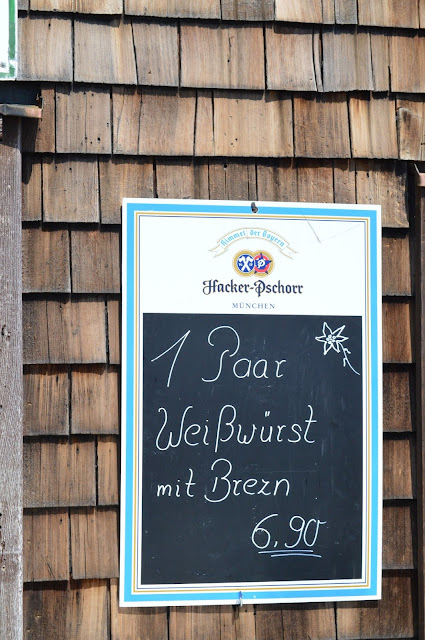 Himmel der Bayern
Hacker-Pschorr
MÜNCHEN
1 Paar
Weißwürst
mit Brezn
6,90